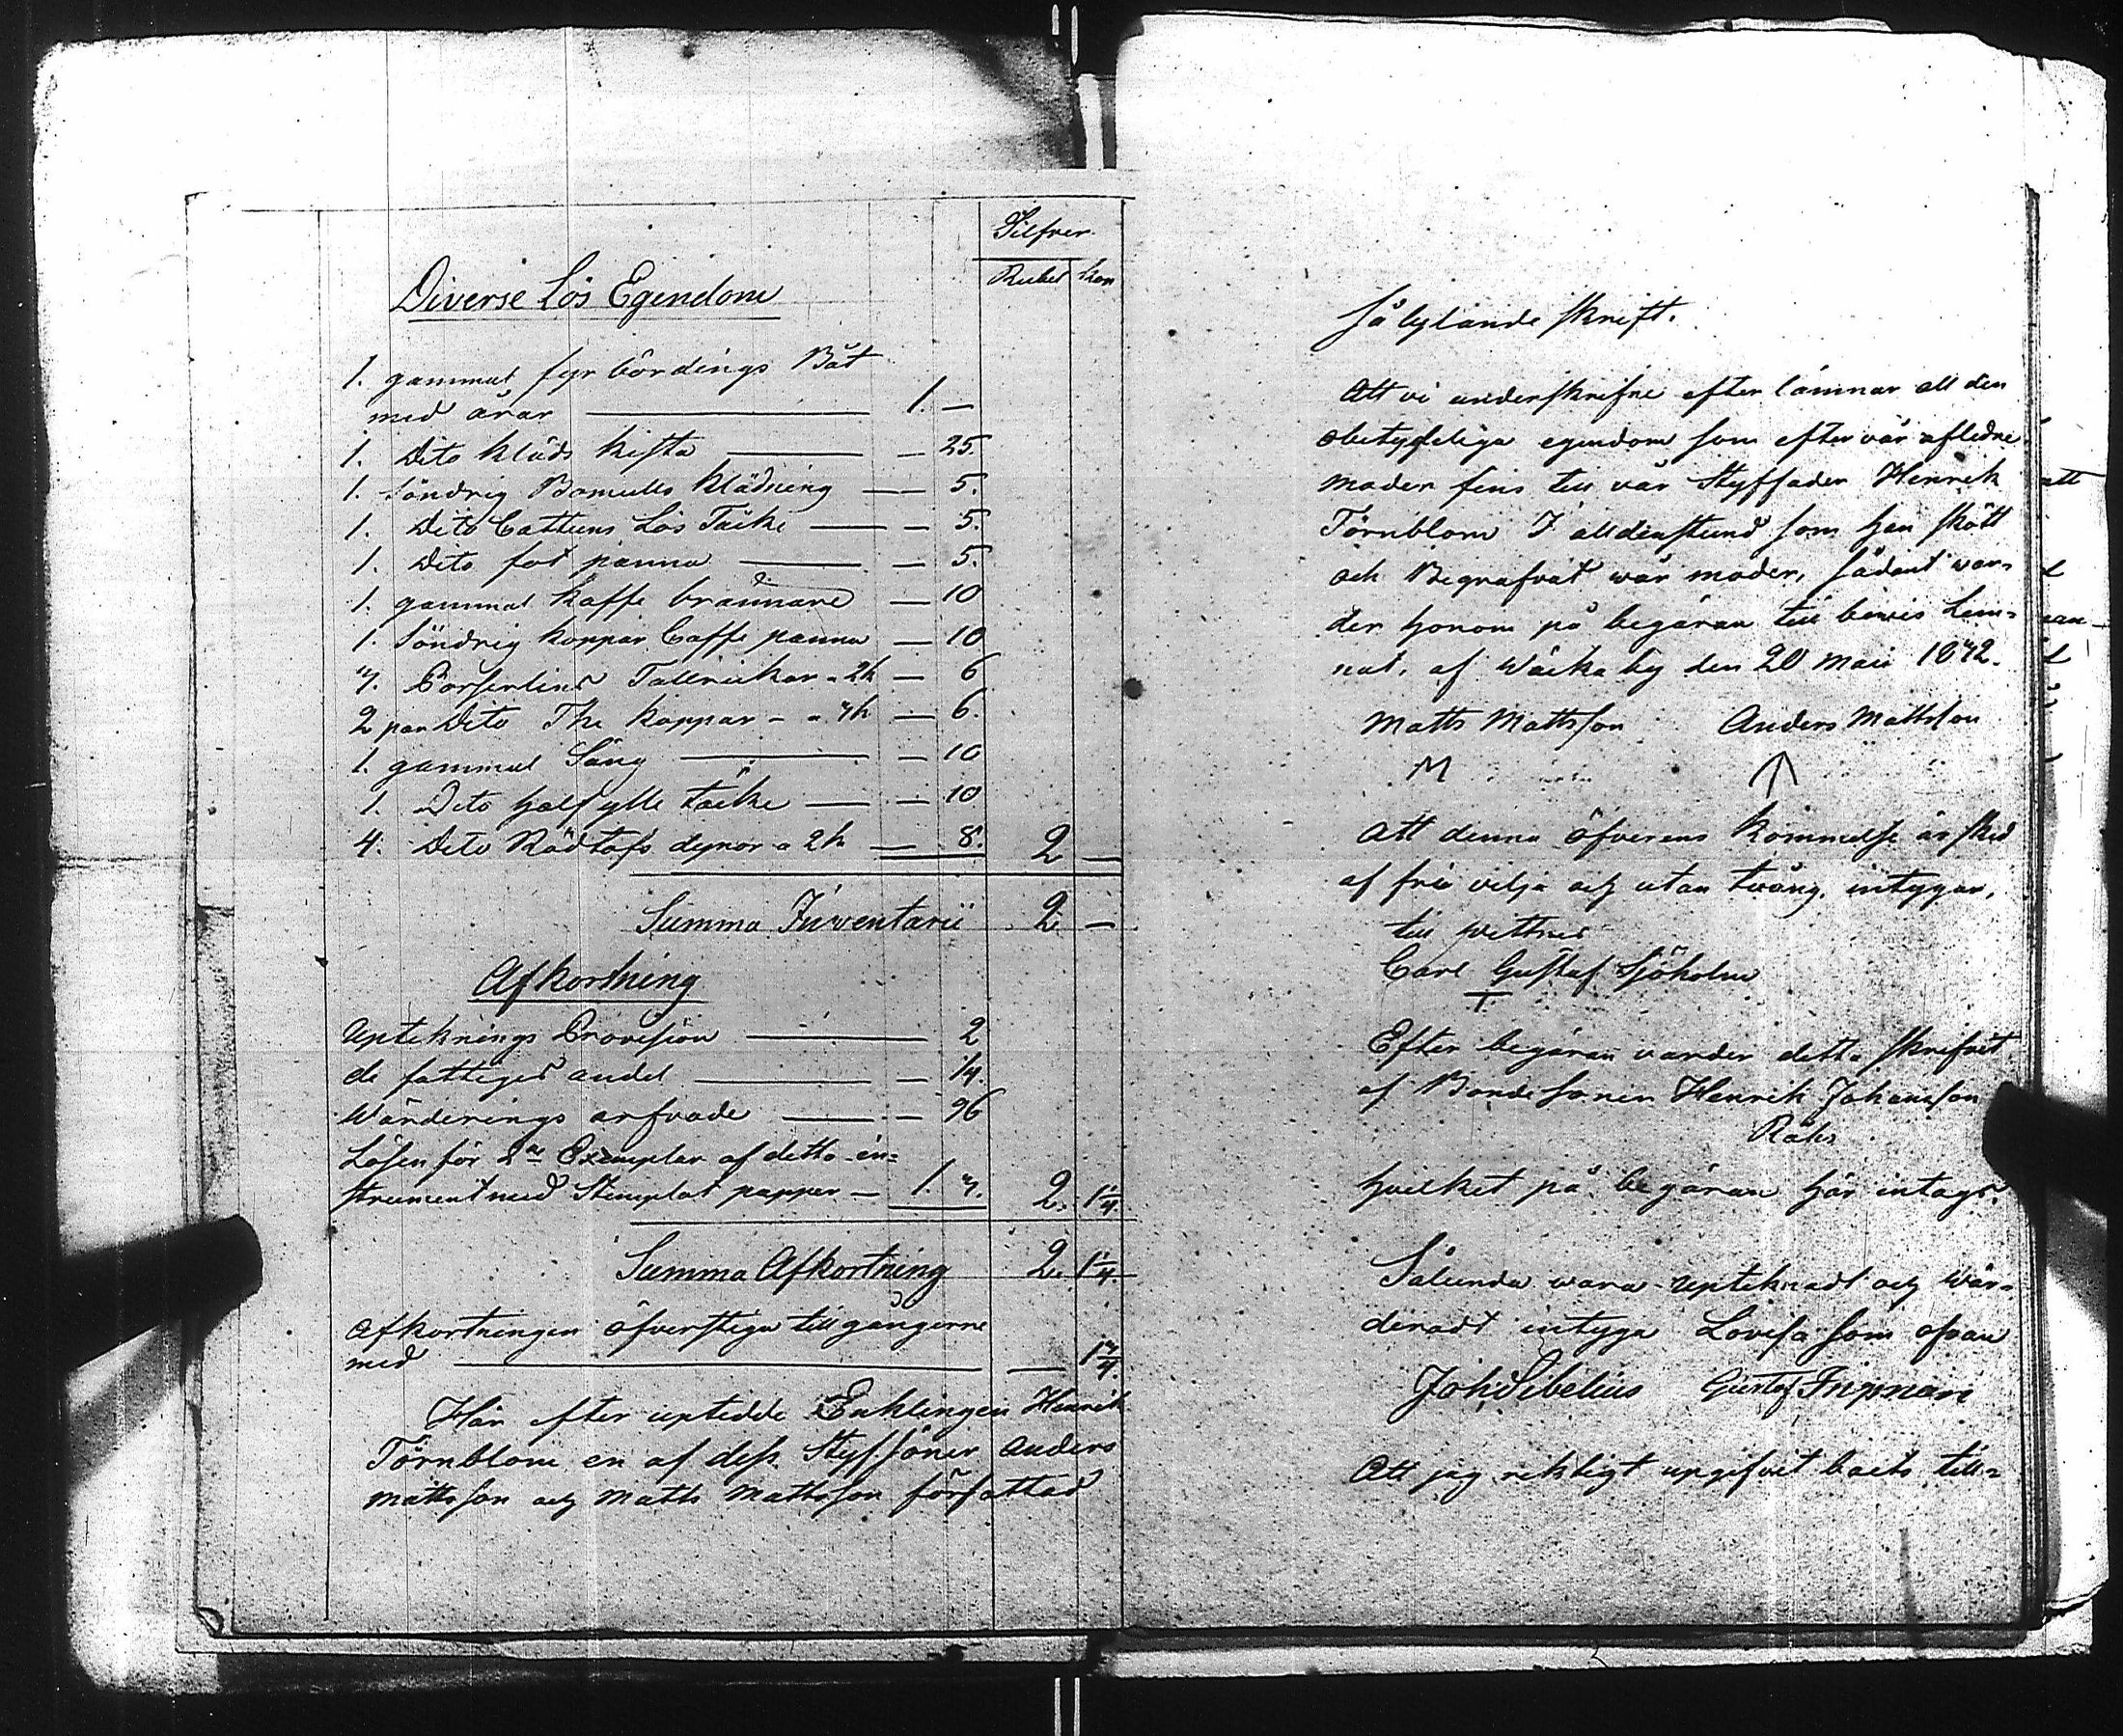 Silfver
Rubel Kop
Diverse Lös Egendom
1. gammal fyr bördings Båt
med åror — 1. —
1. Dito kläds kista — 25.
1. Söndrig Bomulls klädning — 5.
1. Dito Cattuns Lös Täcke — 5.
1. Dito fot panna — 5.
1. gammal kaffe brännare — 10
1. Söndrig koppar Caffe panna — 10
3. Porserlins Tallrickar a 2k — 6
2 par Dito The koppar - a 3k — 6.
1. gammal Säng — 10
1. Dito half ylle täcke — 10
4. Dito dynor a 2k — 8. 2 —
Summa Inventarii 2 —
Afkortning
Upteknings Provision — 2
de fattiges andel — 1/4.
Wärderings arfvode — 96
Lösen för 2ne Exemplar af detta in=
strument med Stemplat papper — 1. 3. 2. 1 1/4.
Summa Afkortning 2. 1 1/4.
Afkortningen öfverstiger tillgångerne
med — 1 1/4.
Här efter uptedde Enklingen Henrik
Törnblom en af dess Styfsöner Anders
Mattsson och Matts Mattsson författad
så lylande skrift.
Att vi underskrifne efter lämnar all den
obetydeliga egendom som efter vår aflidne
moder fins till vår Styffader Henrik
Törnblom I alldenstund som han skött
och Begrafvat vår moder, sådant var=
der honom på begäran till bevis Lem=
nat, af Wåtskaby den 20 Maii 1842.
Matts Mattsson Anders Mattsson
M
Att denna öfverens kommelse är sked
af fri vilja och utan tvång, intygar,
till wettnes
Carl Gustaf Sjöholm
Efter begäran varder detta skrifvit
af Bonde sonen Henrik Johansson
hvilket på begäran här intags.
Sålunda vara upteknadt och Wär=
deradt intyga Lovisa som ofvan
Joh. Sibelius Gustof
Att jag riktigt upgifvit boets till=